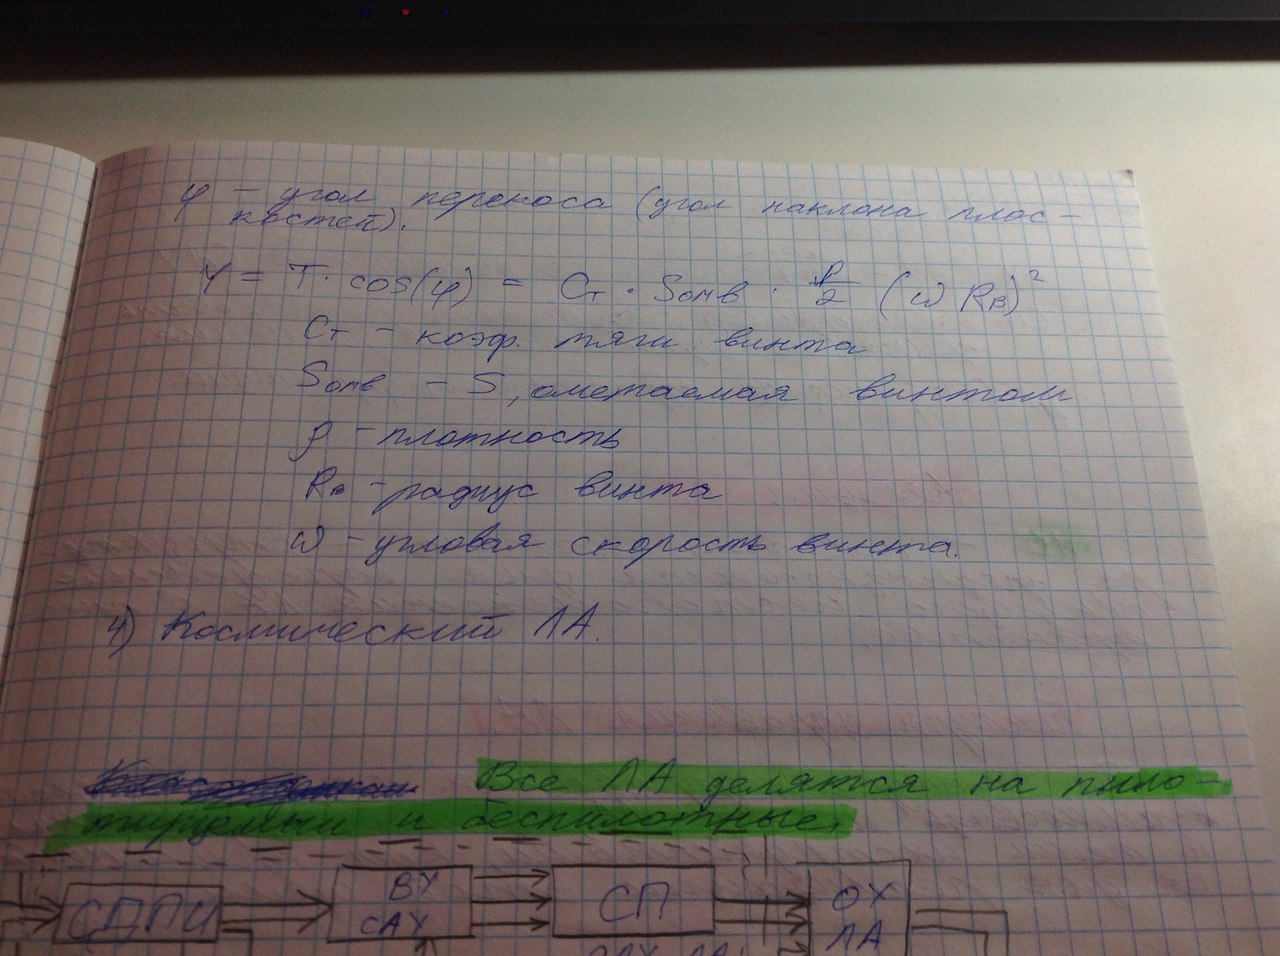 φ – угол перекоса (угол наклона плос–
костей).
Y = T · cos(φ) = Cт · Sомв · ρ/2 (ω Rв)²
Cт – коэф. тяги винта
Sомв – S, ометаемая винтом
ρ – плотность
Rв – радиус винта
ω – угловая скорость винта.
4) Космический ЛА.
Все ЛА делятся на пило–
тируемыи и беспилотные.
СДПИ
ВУ
САУ
СП
ОУ
ЛА
САУ ЛА